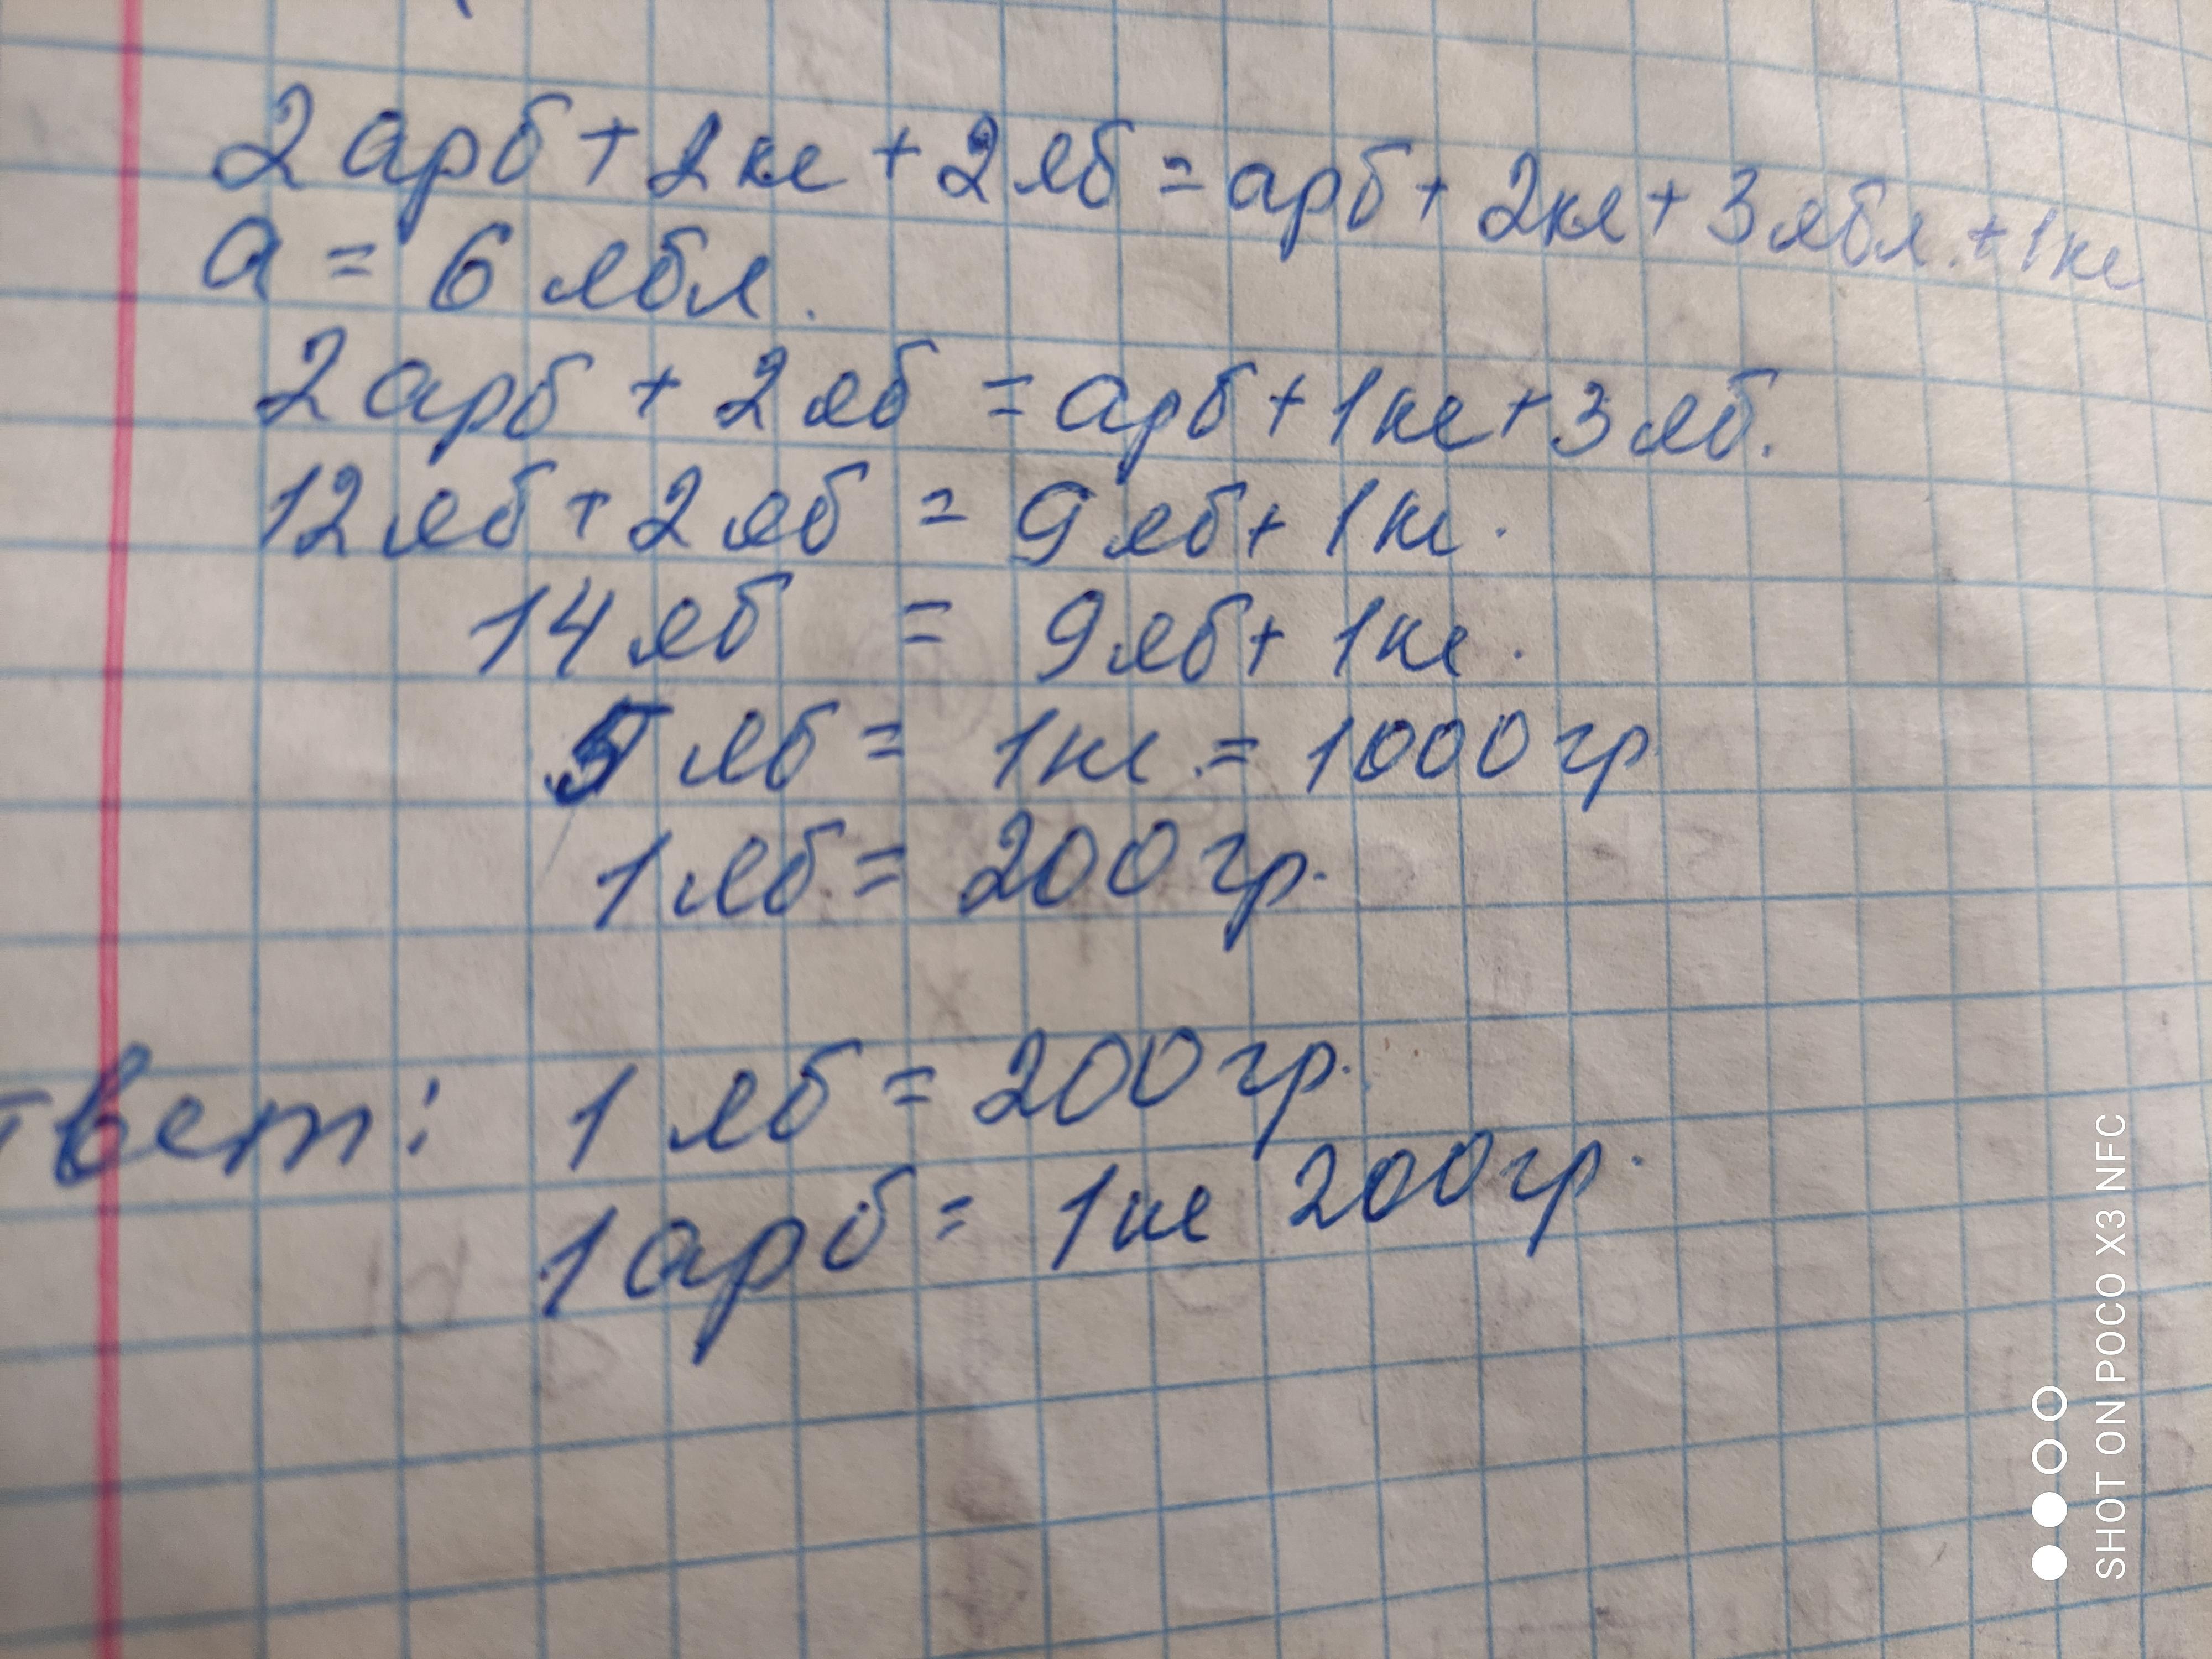 2 арб + 2 кг + 2 яб = арб + 2кг + 3 ябл. + 1кг
а = 6 ябл.
2 арб + 2 яб = арб + 1кг + 3 яб.
12 яб + 2 яб = 9 яб + 1кг.
14 яб = 9 яб + 1кг.
5 яб = 1кг. = 1000 гр
1 яб = 200 гр.
твет: 1 яб = 200 гр.
1 арб = 1кг 200 гр.
SHOT ON POCO X3 NFC